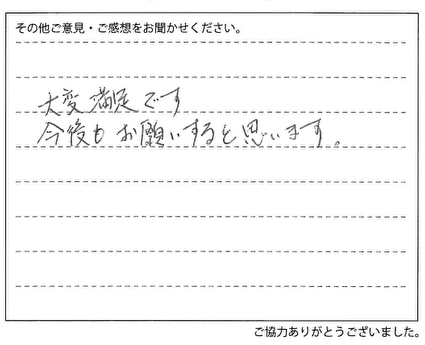 その他ご意見・ご感想をお聞かせください。
大変満足です
今後もお願いすると思います。
ご協力ありがとうございました。